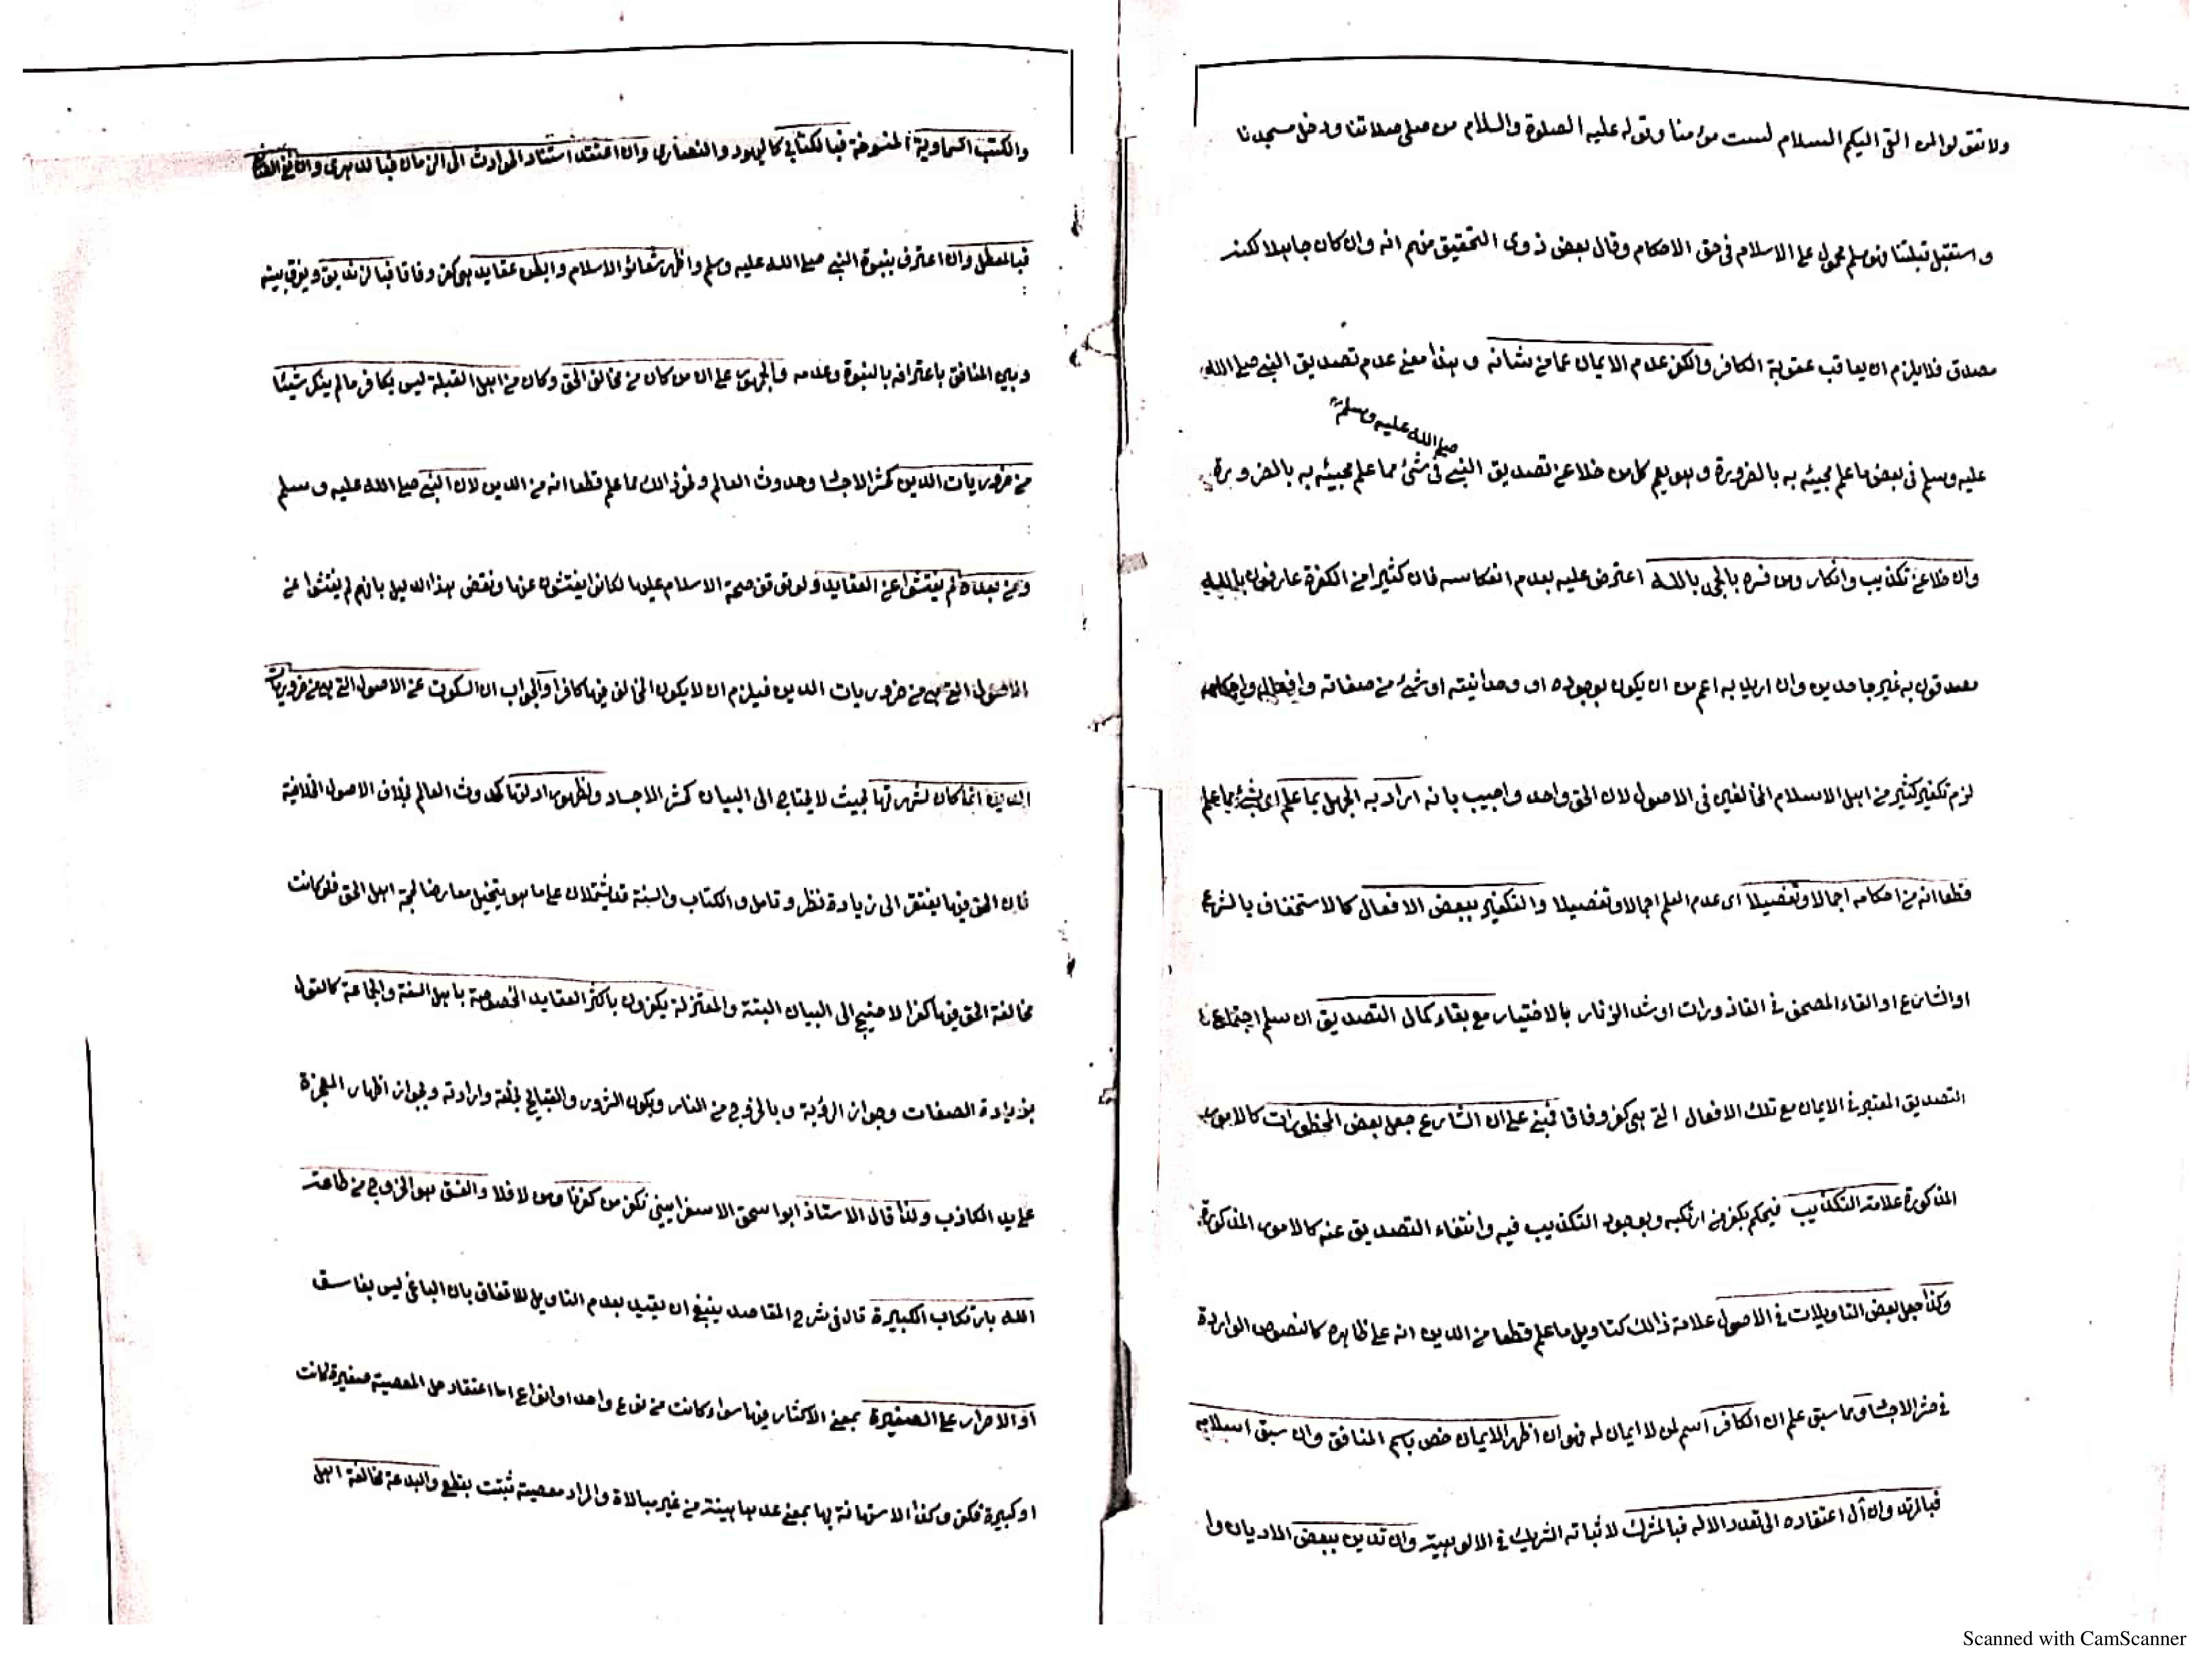 ولا تقولوا لمن القى اليكم السلام لست مؤمنا وقوله عليه الصلوة والسلام من صلى صلاتنا ودخل مسجدنا
واستقبل قبلتنا فهو مسلم محمول على الاسلام فى حق الاحكام وقال بعض ذوى التحقيق منهم انه وان كان جاهلا لكنه
مصدق فلا يلزم ان يعاقب عقوبة الكافر والكفر عدم الايمان عما من شانه وهذا معنى عدم تصديق النبى صلى الله
صلى الله عليه وسلم
عليه وسلم فى بعض ما علم مجيئه به بالضرورة وهو يعم كل من خلا عن تصديق النبى فى شئ مما علم مجيئه به بالضرورة
وان خلا عن تكذيب وانكار ومن فسره بالجهل بالله اعترض عليه بعدم انعكاسه فان كثيرا من الكفرة عارفون بالله
مصدقون به غير جاحدين وان اريد به اعم من ان يكون بوجوده او وحدانيته او شئ من صفاته وافعاله واحكامه
لزم تكفير كثير من اهل الاسلام المخالفين فى الاصول لان الحق واحد واجيب بانه اراد به الجهل بما علم اى بشئ مما علم
قطعا انه من احكامه اجمالا وتفصيلا اى عدم العلم اجمالا وتفصيلا والتكفير ببعض الافعال كالاستخفاف بالشرع
او الشارع او القاء المصحف فى القاذورات او شد الزنار بالاختيار مع بقاء كمال التصديق ان سلم اجتماع
التصديق المعتبر فى الايمان مع تلك الافعال التى هى كفر وفاقا فمبنى على ان الشارع جعل بعض المحظورات كالامور
المذكورة علامة التكذيب فيحكم بكفر من ارتكبه وبوجود التكذيب فيه وانتفاء التصديق عنه كالامور المذكورة
وكذا جعل بعض التاويلات فى الاصول علامة ذالك كتاويل ما علم قطعا من الدين انه على ظاهره كالنصوص الواردة
فى حشر الاجساد ومما سبق علم ان الكافر اسم لمن لا ايمان له فهو ان اظهر الايمان خص باسم المنافق وان سبق اسلامه
فبالمرتد وان آل اعتقاده الى تعدد الاله فبالمشرك لاثباته الشريك فى الالوهية وان تدين ببعض الاديان وا
والكتب السماوية المنسوخة فبالكتابى كاليهود والنصارى وان اعتقد استناد الحوادث الى الزمان فبالدهرى وان نفى
فبالمعطل وان اعترف بنبوة النبى صلى الله عليه وسلم واظهر شعائر الاسلام وابطن عقايد هى كفر وفاقا فبالزنديق ويفرق بينه
وبين المنافق باعترافه بالنبوة وعدمه والجمهور على ان من كان من مخالف الحق وكان من اهل القبلة ليس بكافر ما لم ينكر شيئا
من ضروريات الدين كحشر الاجساد وحدوث العالم ونحو ذالك مما علم قطعا انه من الدين لان النبى صلى الله عليه وسلم
ومن بعده لم يفتشوا عن العقايد ولو توقف صحة الاسلام عليها لكانوا يفتشون عنها ونقض هذا الدليل بانهم لم يفتشوا عن
الاصول التى هى من ضروريات الدين فيلزم ان لا يكون المخالف فيها كافرا والجواب ان السكوت عن الاصول التى هى من ضروريات
الدين انما كان لشهرتها بحيث لا يحتاج الى البيان كحشر الاجساد ولظهور ادلتها كحدوث العالم بخلاف الاصول الخلافية
فان الحق فيها يفتقر الى زيادة نظر وتامل والكتاب والسنة قد يشتملان على ما هو يتخيل معارضا لحجة اهل الحق فلو كانت
مخالفة الحق فيها كفرا لاحتيج الى البيان البتة والمعتزلة يكفرون باكثر العقايد المخصوصة باهل السنة والجماعة كالقول
بزيادة الصفات وجواز الرؤية وبالخروج من النار وبكون الشرور والقبايح بخلقه وارادته وبجواز اظهار المعجزة
على يد الكاذب ولذا قال الاستاذ ابو اسحق الاسفرايينى نكفر من كفرنا ومن لا فلا والفسق هو الخروج من طاعة
الله بارتكاب الكبيرة قال فى شرح المقاصد ينبغى ان يقيد بعدم التاويل للاتفاق بان الباغى ليس بفاسق
او الاصرار على الصغيرة بمعنى الاكثار فيها سواء كانت من نوع واحد او انواع اما اعتقاد حل المعصية صغيرة كانت
او كبيرة فكفر وكذا الاستهانة بها بمعنى عدها هينة من غير مبالاة والمراد معصية ثبتت بقطع والبدعة مخالفة اهل
Scanned with CamScanner